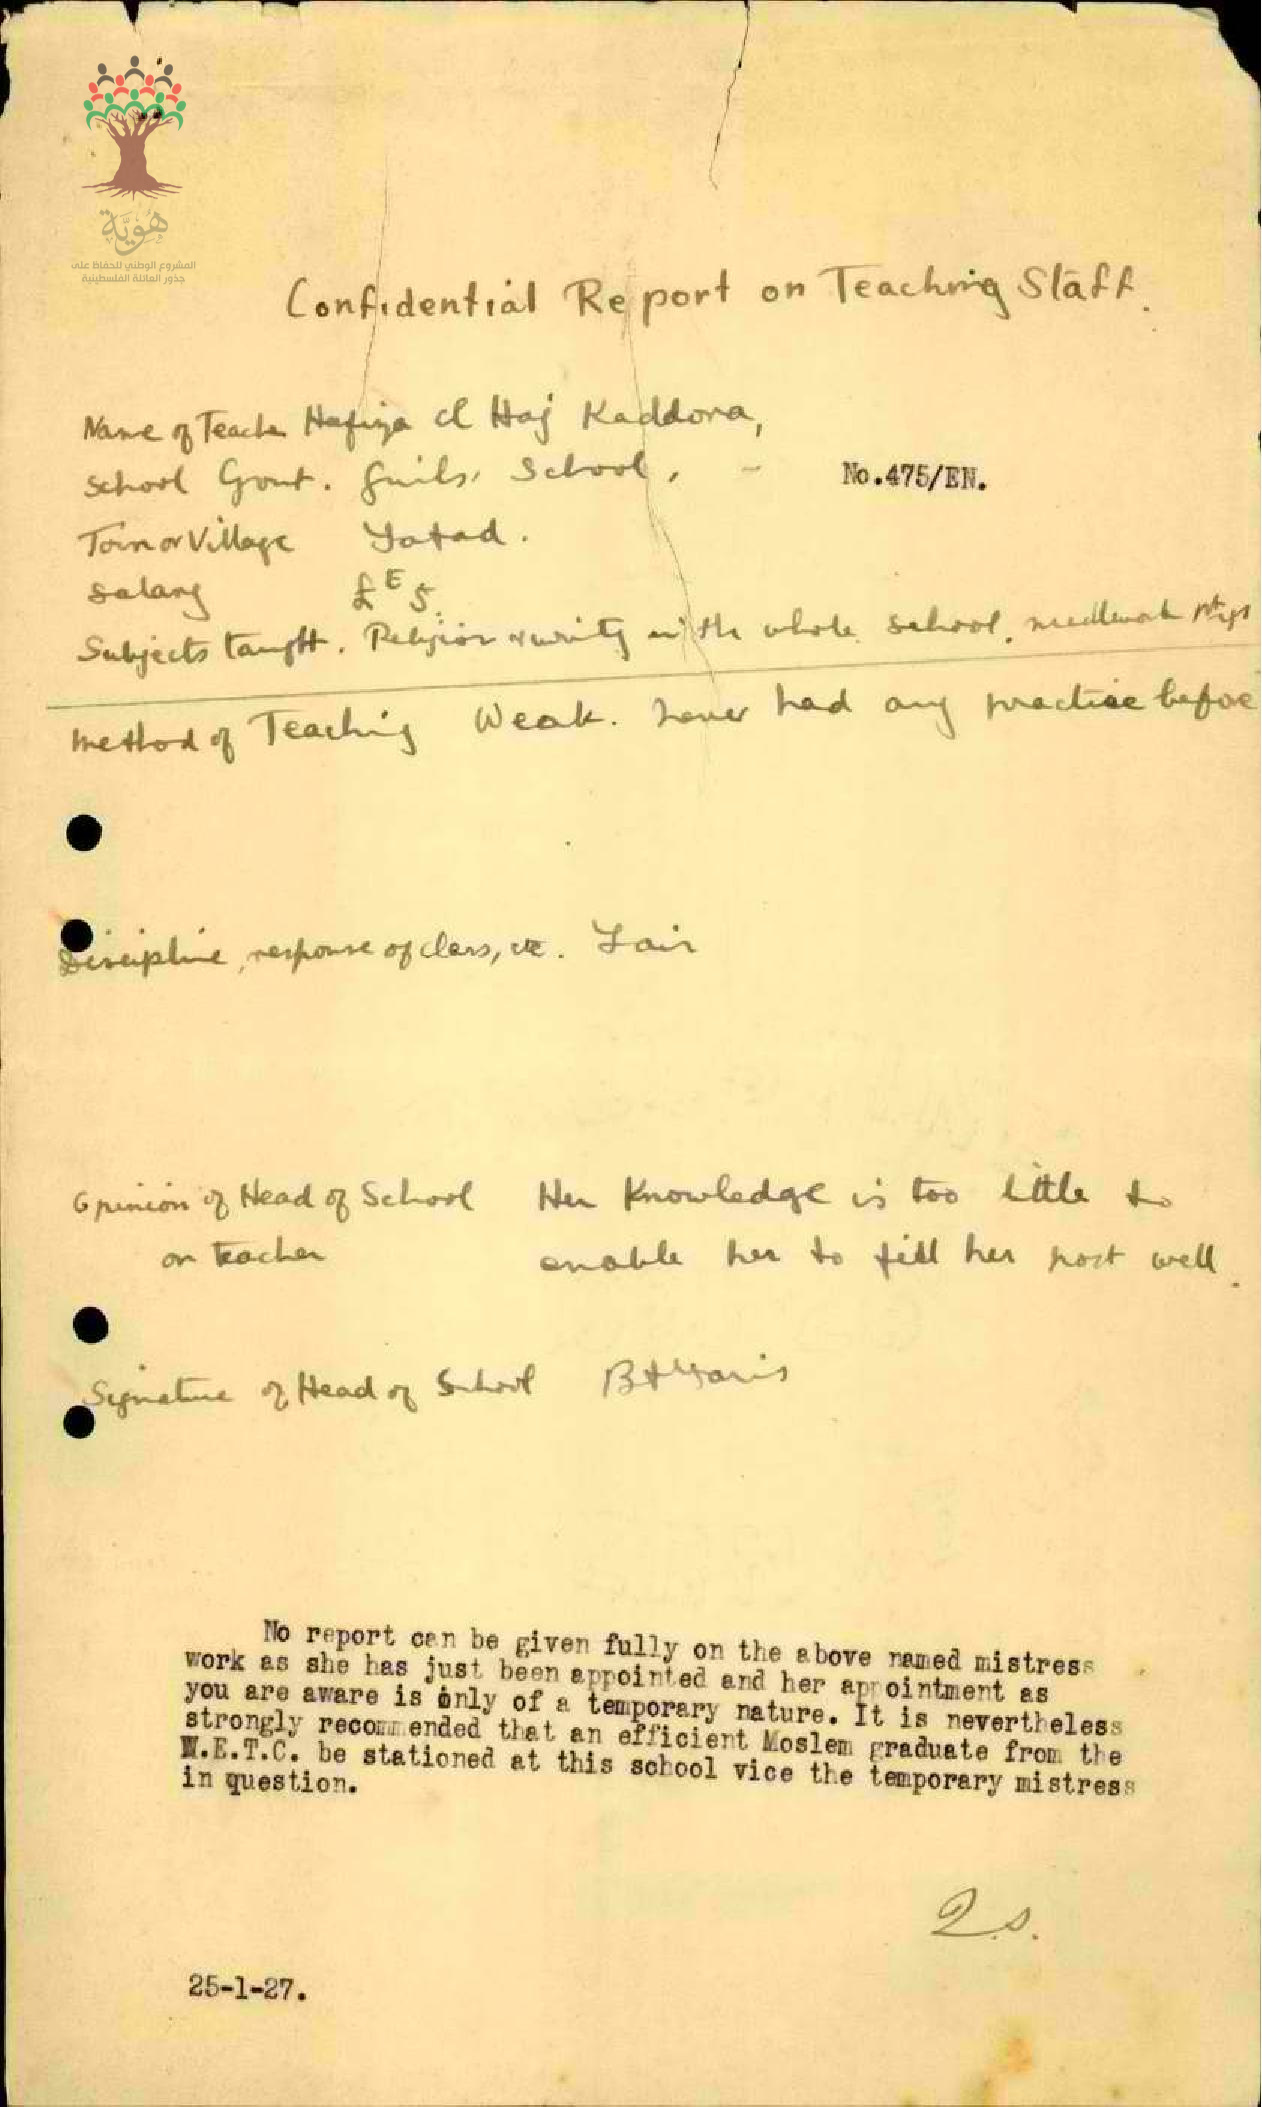 هُوِيَّة
المشروع الوطني للحفاظ على
جذور العائلة الفلسطينية
Confidential Report on Teaching Staff.
Name of Teacher Hafiza el Haj Kaddora,
School Govt. Girls' School, -
No.475/EN.
Town or Village Safad.
Salary £E 5.
Subjects taught. Religion & writing in the whole school. needlework
Method of Teaching Weak. never had any practice before
Discipline, response of class, etc. Fair
Opinion of Head of School Her Knowledge is too little to
on teacher enable her to fill her post well.
Signature of Head of School
No report can be given fully on the above named mistress
work as she has just been appointed and her appointment as
you are aware is only of a temporary nature. It is nevertheless
strongly recommended that an efficient Moslem graduate from the
W.E.T.C. be stationed at this school vice the temporary mistress
in question.
25-1-27.